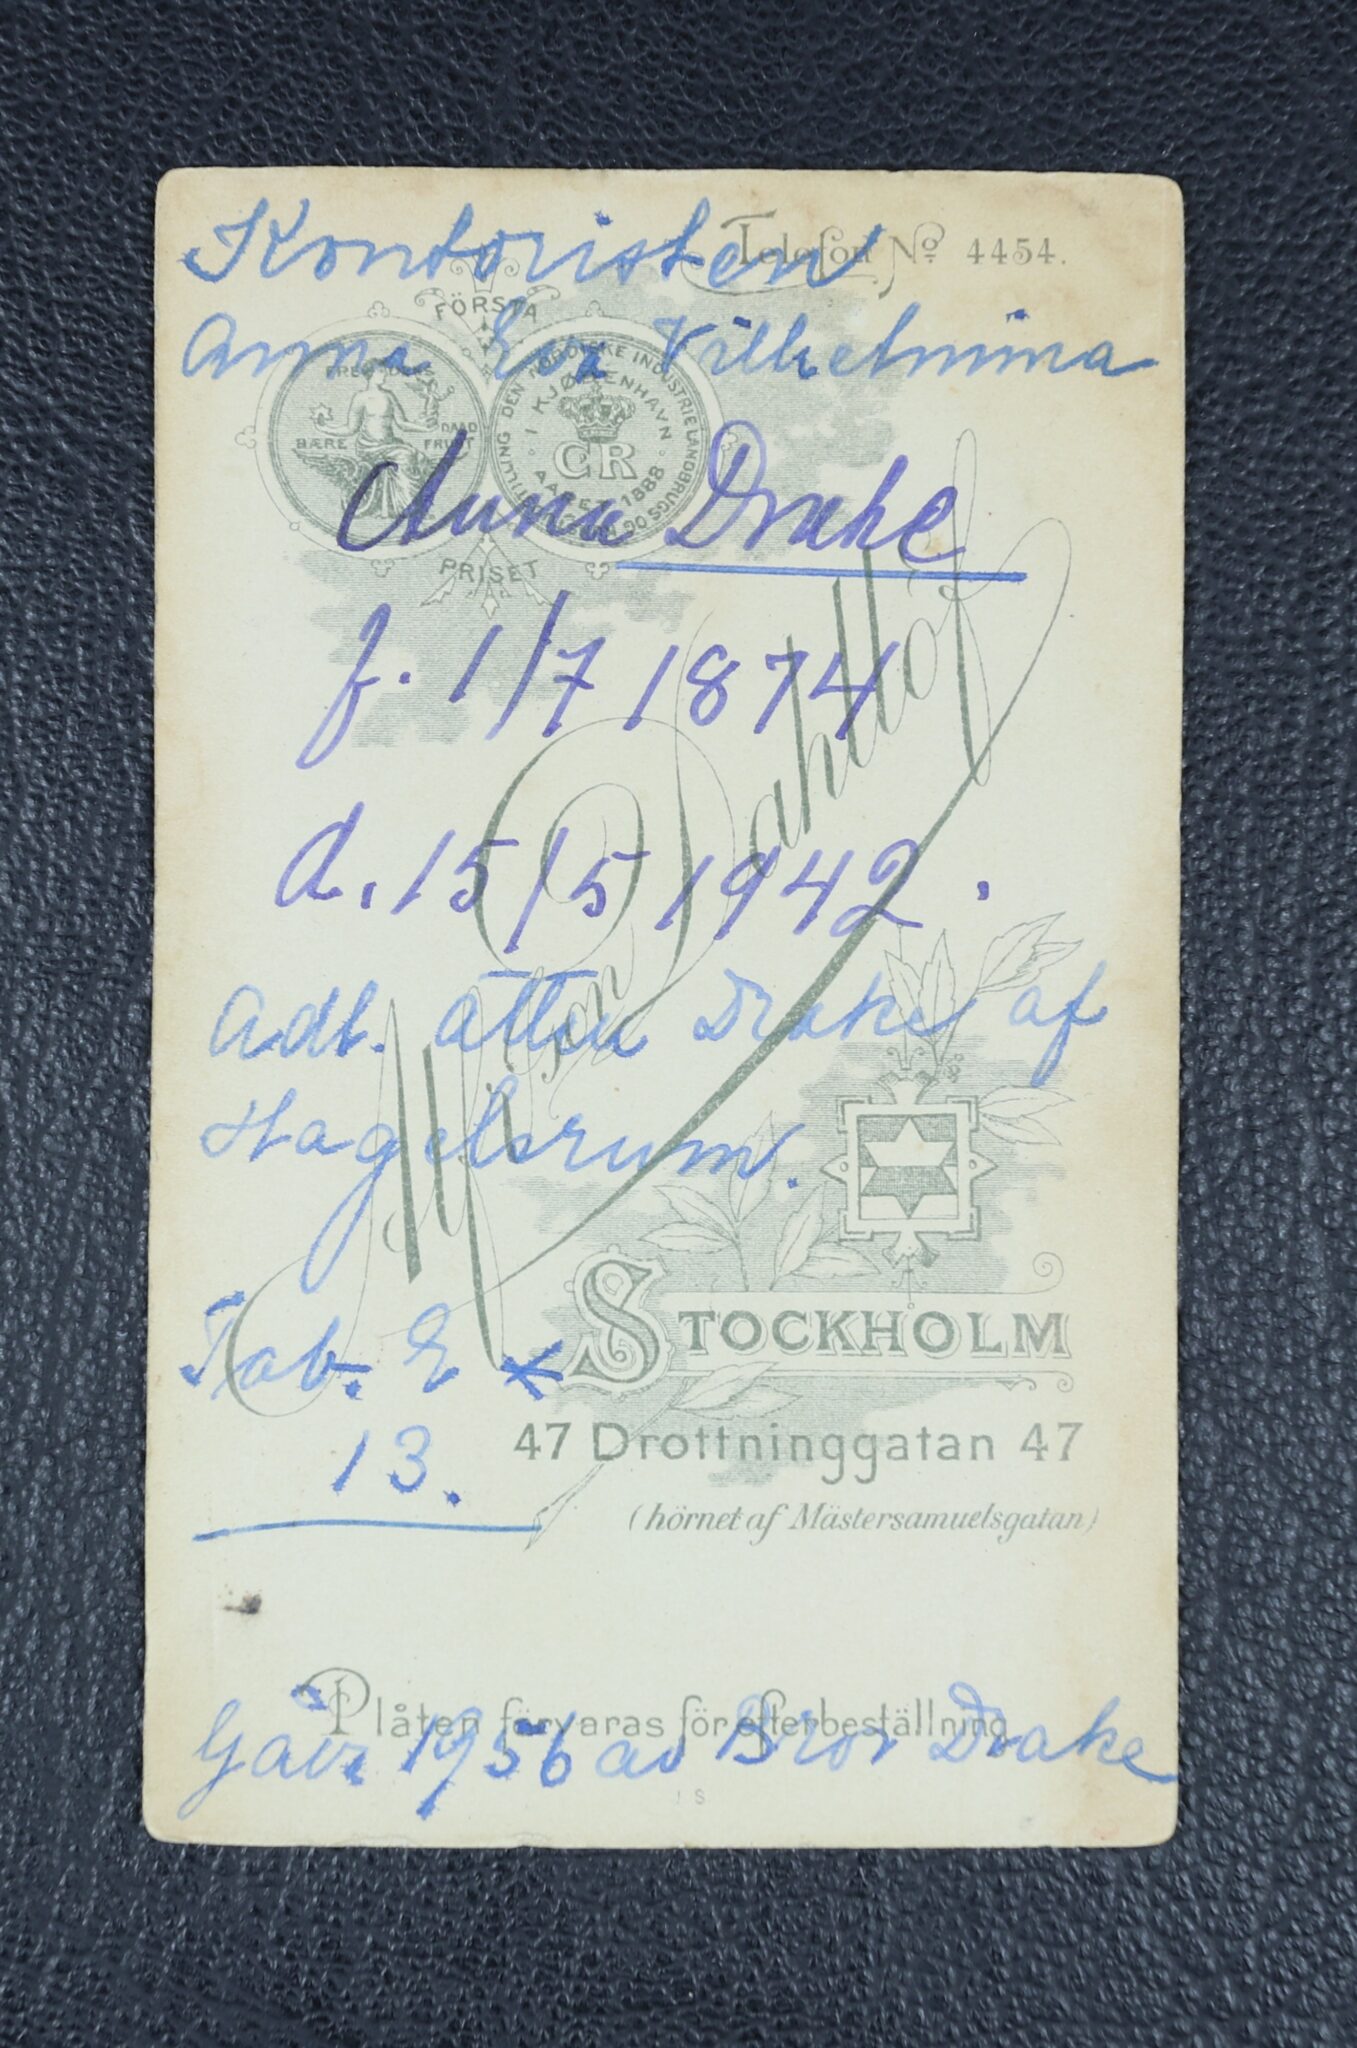 Kontoristen
Telefon No 4454.
Anna Eva Vilhelmina
FÖRSTA
FREMTIDENS
BÆRE
DAAD
FRUGT
DEN NORDISKE INDUSTRI LANDBRUGS OG UDSTILLING
I KJØBENHAVN
CR
AARET 1888
PRISET
Anna Drake
f. 1/7 1874
d. 15/5 1942.
Adl. ätten Drake af
Hagelsrum.
Alfson Dahllöf
Tab. E *
13.
STOCKHOLM
47 Drottninggatan 47
(hörnet af Mästersamuelsgatan)
Plåten förvaras för efterbeställning
Gåva 1956 av Bror Drake